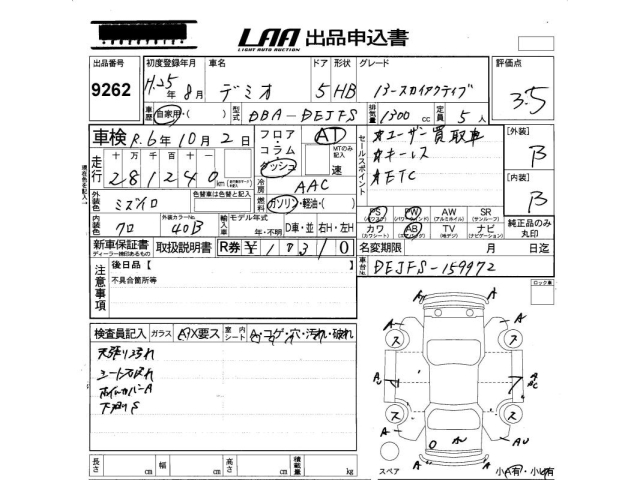 LAA 出品申込書
LIGHT AUTO AUCTION
出品番号 初度登録年月 車名 ドア 形状 グレード 評価点
9262 H.25年8月 デミオ 5 HB 13-スカイアクティブ 3.5
車歴 自家用・( ) 型式 DBA-DEJFS 排気量 1300 cc 定員 5人
車検 R.6年10月2日 フロア・コラム・ダッシュ AT MTのみ記入 速
セールスポイント
★ユーザー買取車
★キーレス
★ETC
[外装] B
[内装] B
走行 十万 万 千 百 十 一
281240 km
冷房 AAC
外装色 ミズイロ 色替車は色替と記入 燃料 ガソリン・軽油・( )
内装色 クロ 外装カラーNo. 40B 輸入車 モデル年式 年・不明 D車・並 右H・左H
PS PW AW SR
(パワステ) (パワーウインド) (アルミホイル) (サンルーフ)
カワ AB TV ナビ
(カワシート) (エアバッグ) (地デジ) (ナビゲーション)
純正品のみ丸印
新車保証書 取扱説明書 R券 ¥ 10310 名変期限 月 日迄
ディーラー捺印あるもの
注意事項 後日品【
不具合箇所等
車台No. DEJFS-159972
ロック車
検査員記入 ガラス AX要ス 室内シート A・コゲ・穴・汚れ・破れ
天張り汚れ
シート汚れ
ホイルカバーA
下廻りS
長さ cm 幅 cm 高さ cm 積載量 kg
スペア 小A有・小U有